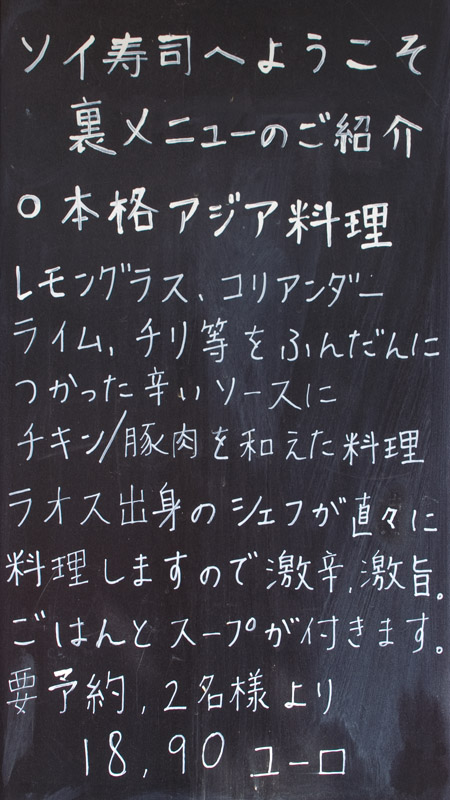 ソイ寿司へようこそ
裏メニューのご紹介
○本格アジア料理
レモングラス、コリアンダー
ライム、チリ等をふんだんに
つかった辛いソースに
チキン/豚肉を和えた料理
ラオス出身のシェフが直々に
料理しますので激辛、激旨。
ごはんとスープが付きます。
要予約、2名様より
18,90 ユーロ